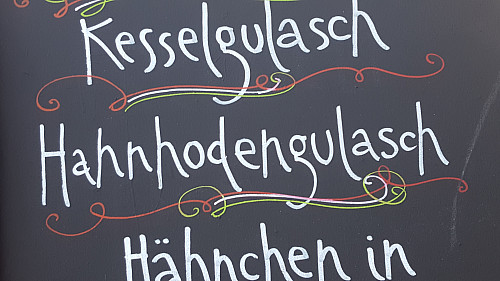 Kesselgulasch
Hahnhodengulasch
Hähnchen in